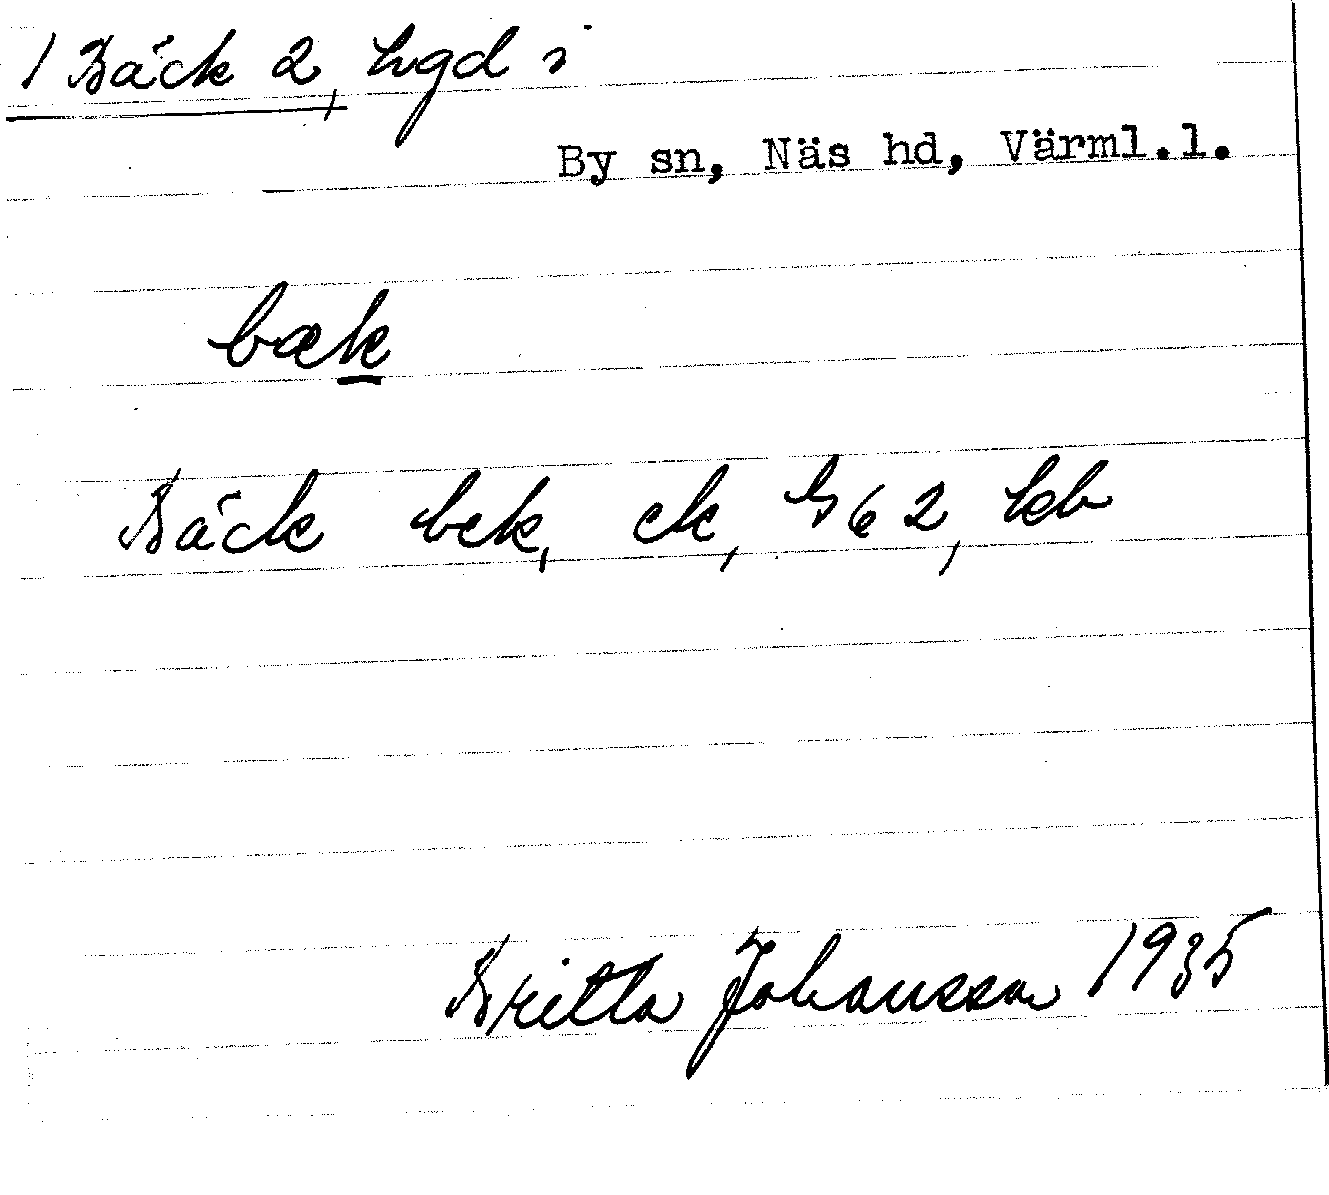 1 Bäck 2, hgd i
By sn, Näs hd, Värml.l.
bæk
Bäck bek, ek, G62, kb
Britta Johansson 1935